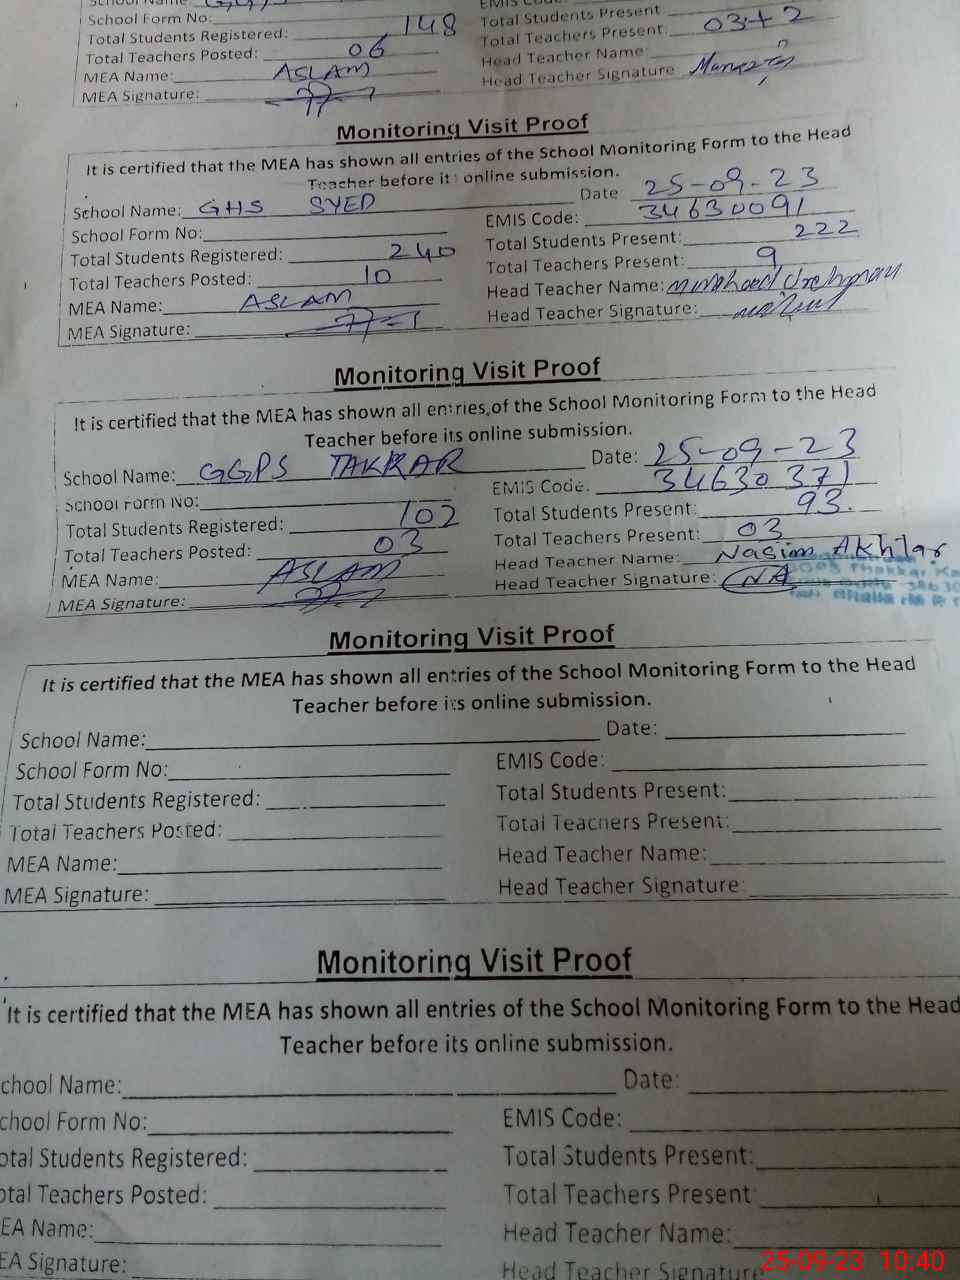 School Form No:
Total Students Registered: 148 Total Students Present
Total Teachers Posted: 06 Total Teachers Present: 03+2
MEA Name: ASLAM Head Teacher Name:
MEA Signature: Head Teacher Signature
Monitoring Visit Proof
It is certified that the MEA has shown all entries of the School Monitoring Form to the Head
Teacher before its online submission.
School Name: GHS SYED Date: 25-09-23
School Form No: EMIS Code: 34630091
Total Students Registered: 240 Total Students Present: 222
Total Teachers Posted: 10 Total Teachers Present: 9
MEA Name: ASLAM Head Teacher Name:
MEA Signature: Head Teacher Signature:
Monitoring Visit Proof
It is certified that the MEA has shown all entries of the School Monitoring Form to the Head
Teacher before its online submission.
School Name: GGPS TAKRAR Date: 25-09-23
School Form No: EMIS Code: 34630371
Total Students Registered: 102 Total Students Present: 93.
Total Teachers Posted: 03 Total Teachers Present: 03
MEA Name: ASLAM Head Teacher Name: Nasim Akhtar
MEA Signature: Head Teacher Signature: NA
Monitoring Visit Proof
It is certified that the MEA has shown all entries of the School Monitoring Form to the Head
Teacher before its online submission.
School Name: Date:
School Form No: EMIS Code:
Total Students Registered: Total Students Present:
Total Teachers Posted: Total Teachers Present:
MEA Name: Head Teacher Name:
MEA Signature: Head Teacher Signature:
Monitoring Visit Proof
It is certified that the MEA has shown all entries of the School Monitoring Form to the Head
Teacher before its online submission.
chool Name: Date:
chool Form No: EMIS Code:
otal Students Registered: Total Students Present:
otal Teachers Posted: Total Teachers Present
EA Name: Head Teacher Name:
EA Signature: Head Teacher Signatur
25-09-23 10:40